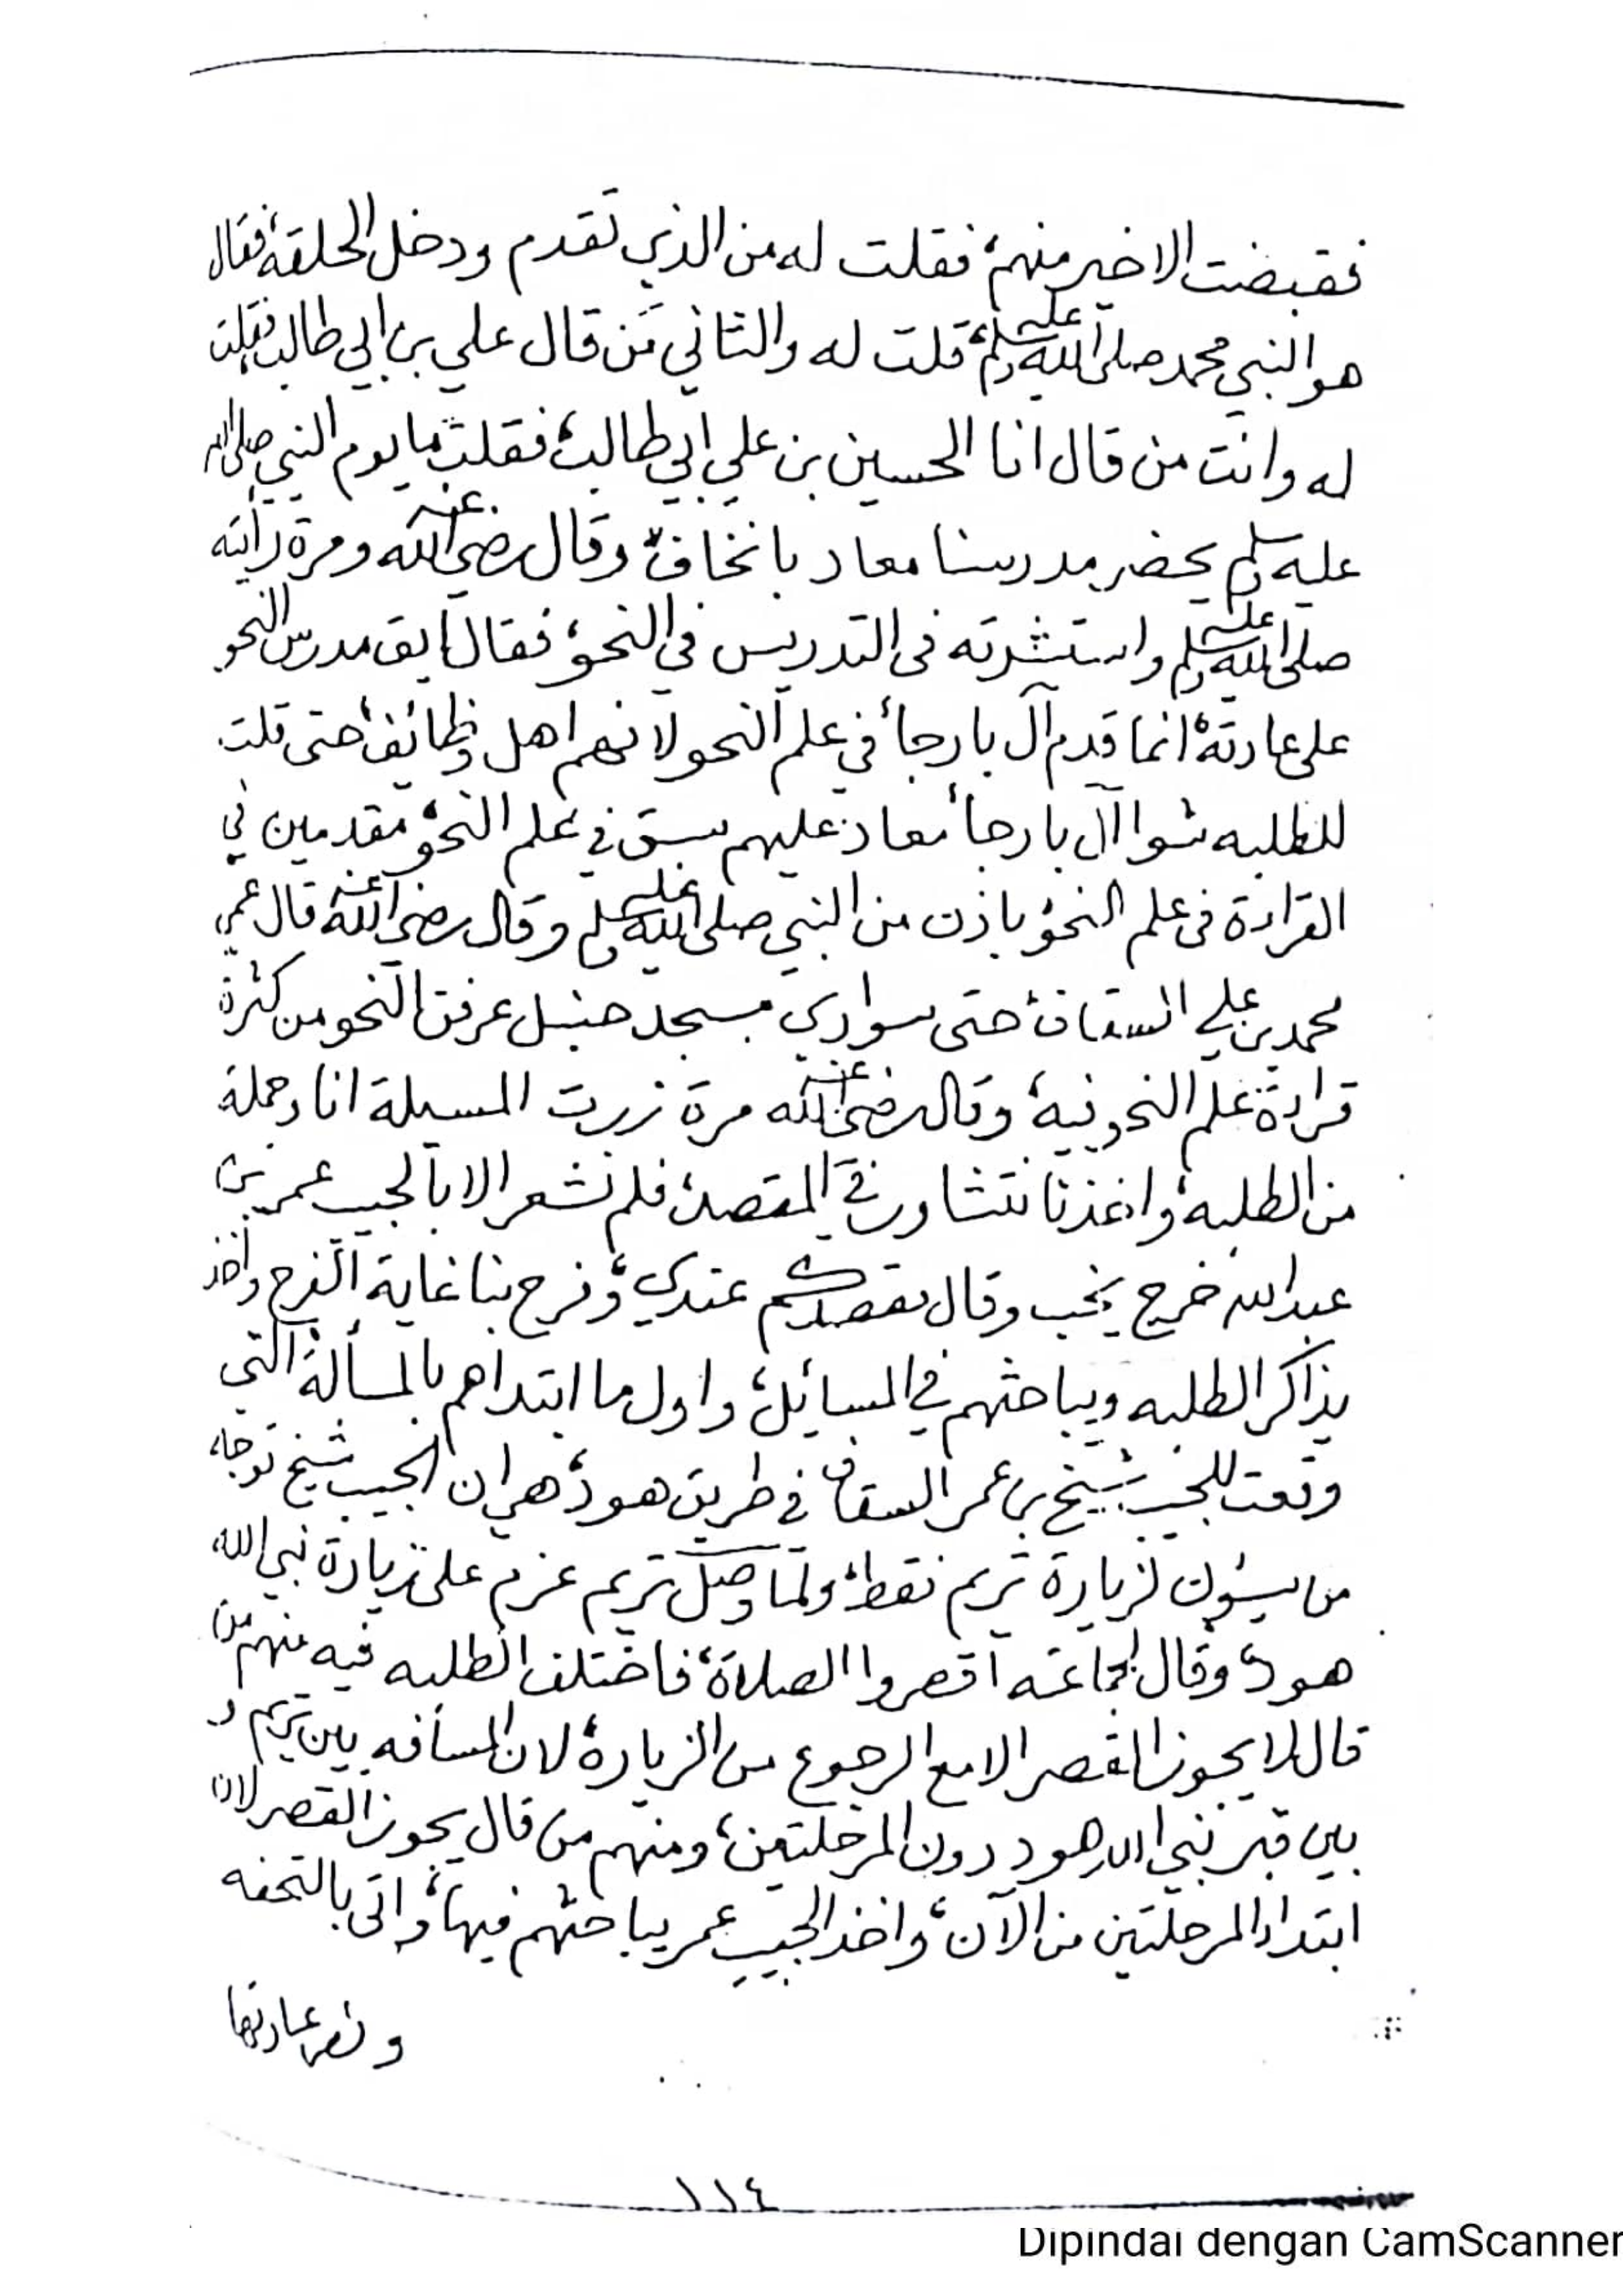 فقبضت الاخير منهم، فقلت له من الذي تقدم ودخل الحلقة، فقال
هو النبي محمد صلى الله عليه وسلم، قلت له والثاني مَن قال علي بن ابي طالب، فقلت
له وانت من قال انا الحسين بن علي ابي طالب، فقلت ما يوم النبي صلى الله
عليه وسلم يحضر مدرسنا معاد بانخاف، وقال رضي الله عنه ومرة رأيته
صلى الله عليه وسلم واستشرته في التدريس في النحو، فقال ابق مدرس النحو
على عادته، انما قدم آل بارجأ في علم النحو لانهم اهل وظائف، حتى قلت
للطلبه شوا آل بارجأ معاد عليهم سبق في علم النحو، مقدمين في
القراءة في علم النحو باذن من النبي صلى الله عليه وسلم وقال رضي الله عنه قال عمي
محمد بن علي السقاف، حتى سواري مسجد حنبل عرفن النحو من كثرة
قراءة علم النحو فيه، وقال رضي الله عنه مرة زرت المسيلة انا وجملة
من الطلبه، واخذنا نتشاور في المقصد، فلم نشعر الا بالحبيب عمر بن
عبد الله خرج يخب وقال مقصدكم عندي، وفرح بنا غاية الفرح واخذ
يذاكر الطلبه ويباحثهم في المسائل، واول ما ابتداهم بالمسألة التي
وقعت للحبيب شيخ بن عمر السقاف في طريق هود، هي ان الحبيب شيخ توجه
من سيؤن لزيارة تريم فقط، ولما وصل تريم عزم على زيارة نبي الله
هود، وقال لجماعته اقصروا الصلاة، فاختلف الطلبه فيه منهم من
قال لا يجوز القصر الا مع الرجوع من الزيارة، لان المسافه بين تريم و
بين قبر نبي الله هود دون المرحلتين، ومنهم من قال يجوز القصر لان
ابتداء المرحلتين من الآن، واخذ الحبيب عمر يباحثهم فيها، واتى بالتحفه
ونص عبارتها
١١٤
Dipindai dengan CamScanner